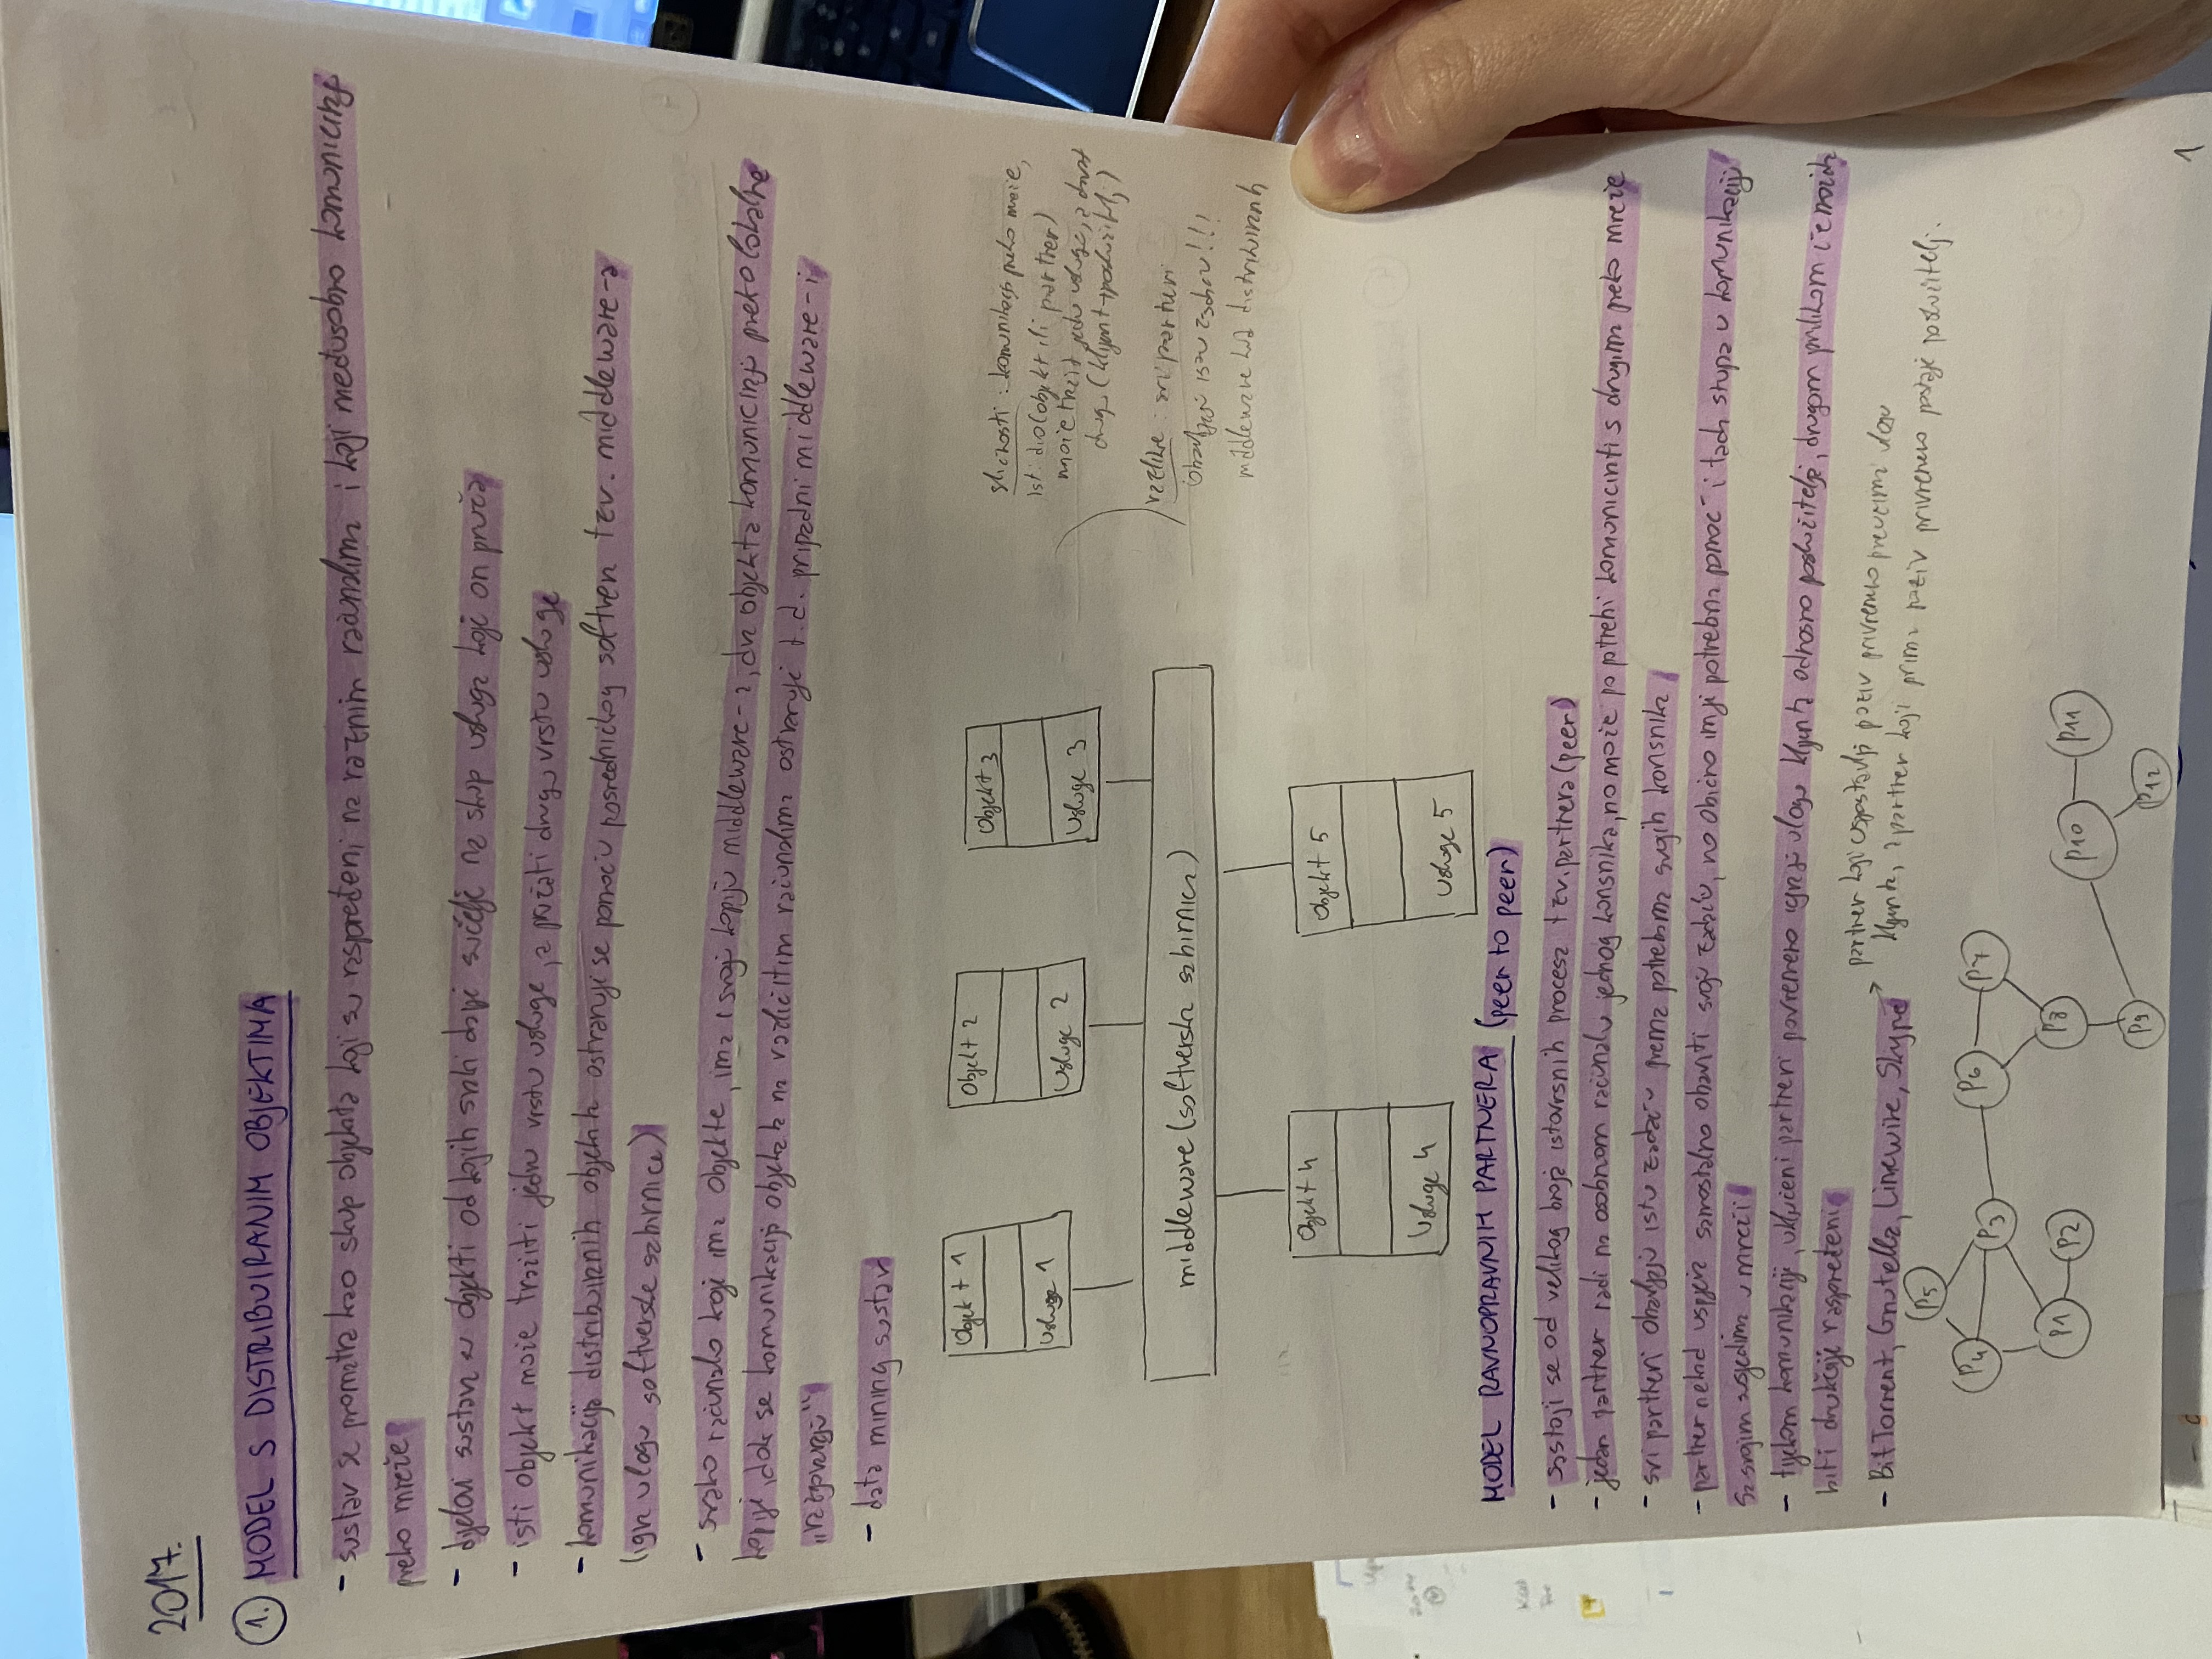 2017.
1. MODEL S DISTRIBUIRANIM OBJEKTIMA
- sustav se promatra kao skup objekata koji su raspoređeni na raznim računalima i koji međusobno komuniciraju
preko mreže
- dijelovi sustava su objekti od kojih svaki daje sučelje na skup usluga koje on pruža
- isti objekt može tražiti jednu vrstu usluge, a pružati drugu vrstu usluge
- komunikacija distribuiranih objekata ostvaruje se pomoću posredničkog softvera tzv. middleware-a
(igra ulogu softverske sabirnice)
- svako računalo koje ima objekte, ima i svoju kopiju middleware-a, dva objekta komuniciraju preko lokalne
kopije, dok se komunikacija objekata na različitim računalima ostvaruje t.d. pripadni middleware-i
„razgovaraju“
- data mining sustav
Objekt 1
Usluge 1
Objekt 2
Usluge 2
Objekt 3
Usluge 3
sličnosti: komunikacija preko mreže,
isti dio (objekt ili partner)
može tražit jednu uslugu, a davat
drugu (klijent → poslužitelj)
razlike: svi partneri
obavljaju istu zadaću!!!
middleware kod distribuiranih
middleware (softverska sabirnica)
Objekt 4
Usluge 4
Objekt 5
Usluge 5
MODEL RAVNOPRAVNIH PARTNERA (peer to peer)
- sastoji se od velikog broja istovrsnih procesa tzv. partnera (peer)
- jedan partner radi na osobnom računalu jednog korisnika, no može po potrebi komunicirati s drugima preko mreže
- svi partneri obavljaju istu zadaću prema potrebama svojih korisnika
- partner nekad uspijeva samostalno obaviti svoju zadaću, no obično mu je potrebna pomoć i tada stupa u komunikaciju
sa svojim susjedima u mreži
- tijekom komunikacije, uključeni partneri povremeno igraju ulogu klijenta odnosno poslužitelja, drugom prilikom će možda
biti drukčije raspoređeni
- BitTorrent, Gnutella, Limewire, Skype → partner koji uspostavlja poziv privremeno preuzima ulogu
klijenta, a partner koji prima poziv privremeno postaje poslužitelj.
P5
P4
P3
P6
P7
P1
P2
P8
P10
P11
P9
P12
1